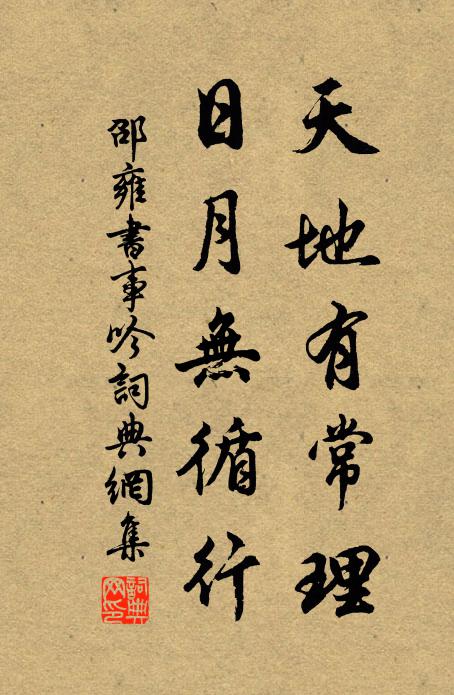 天地有常理
日月無循行
邵雍書事吟詞典網集
詞典
网印